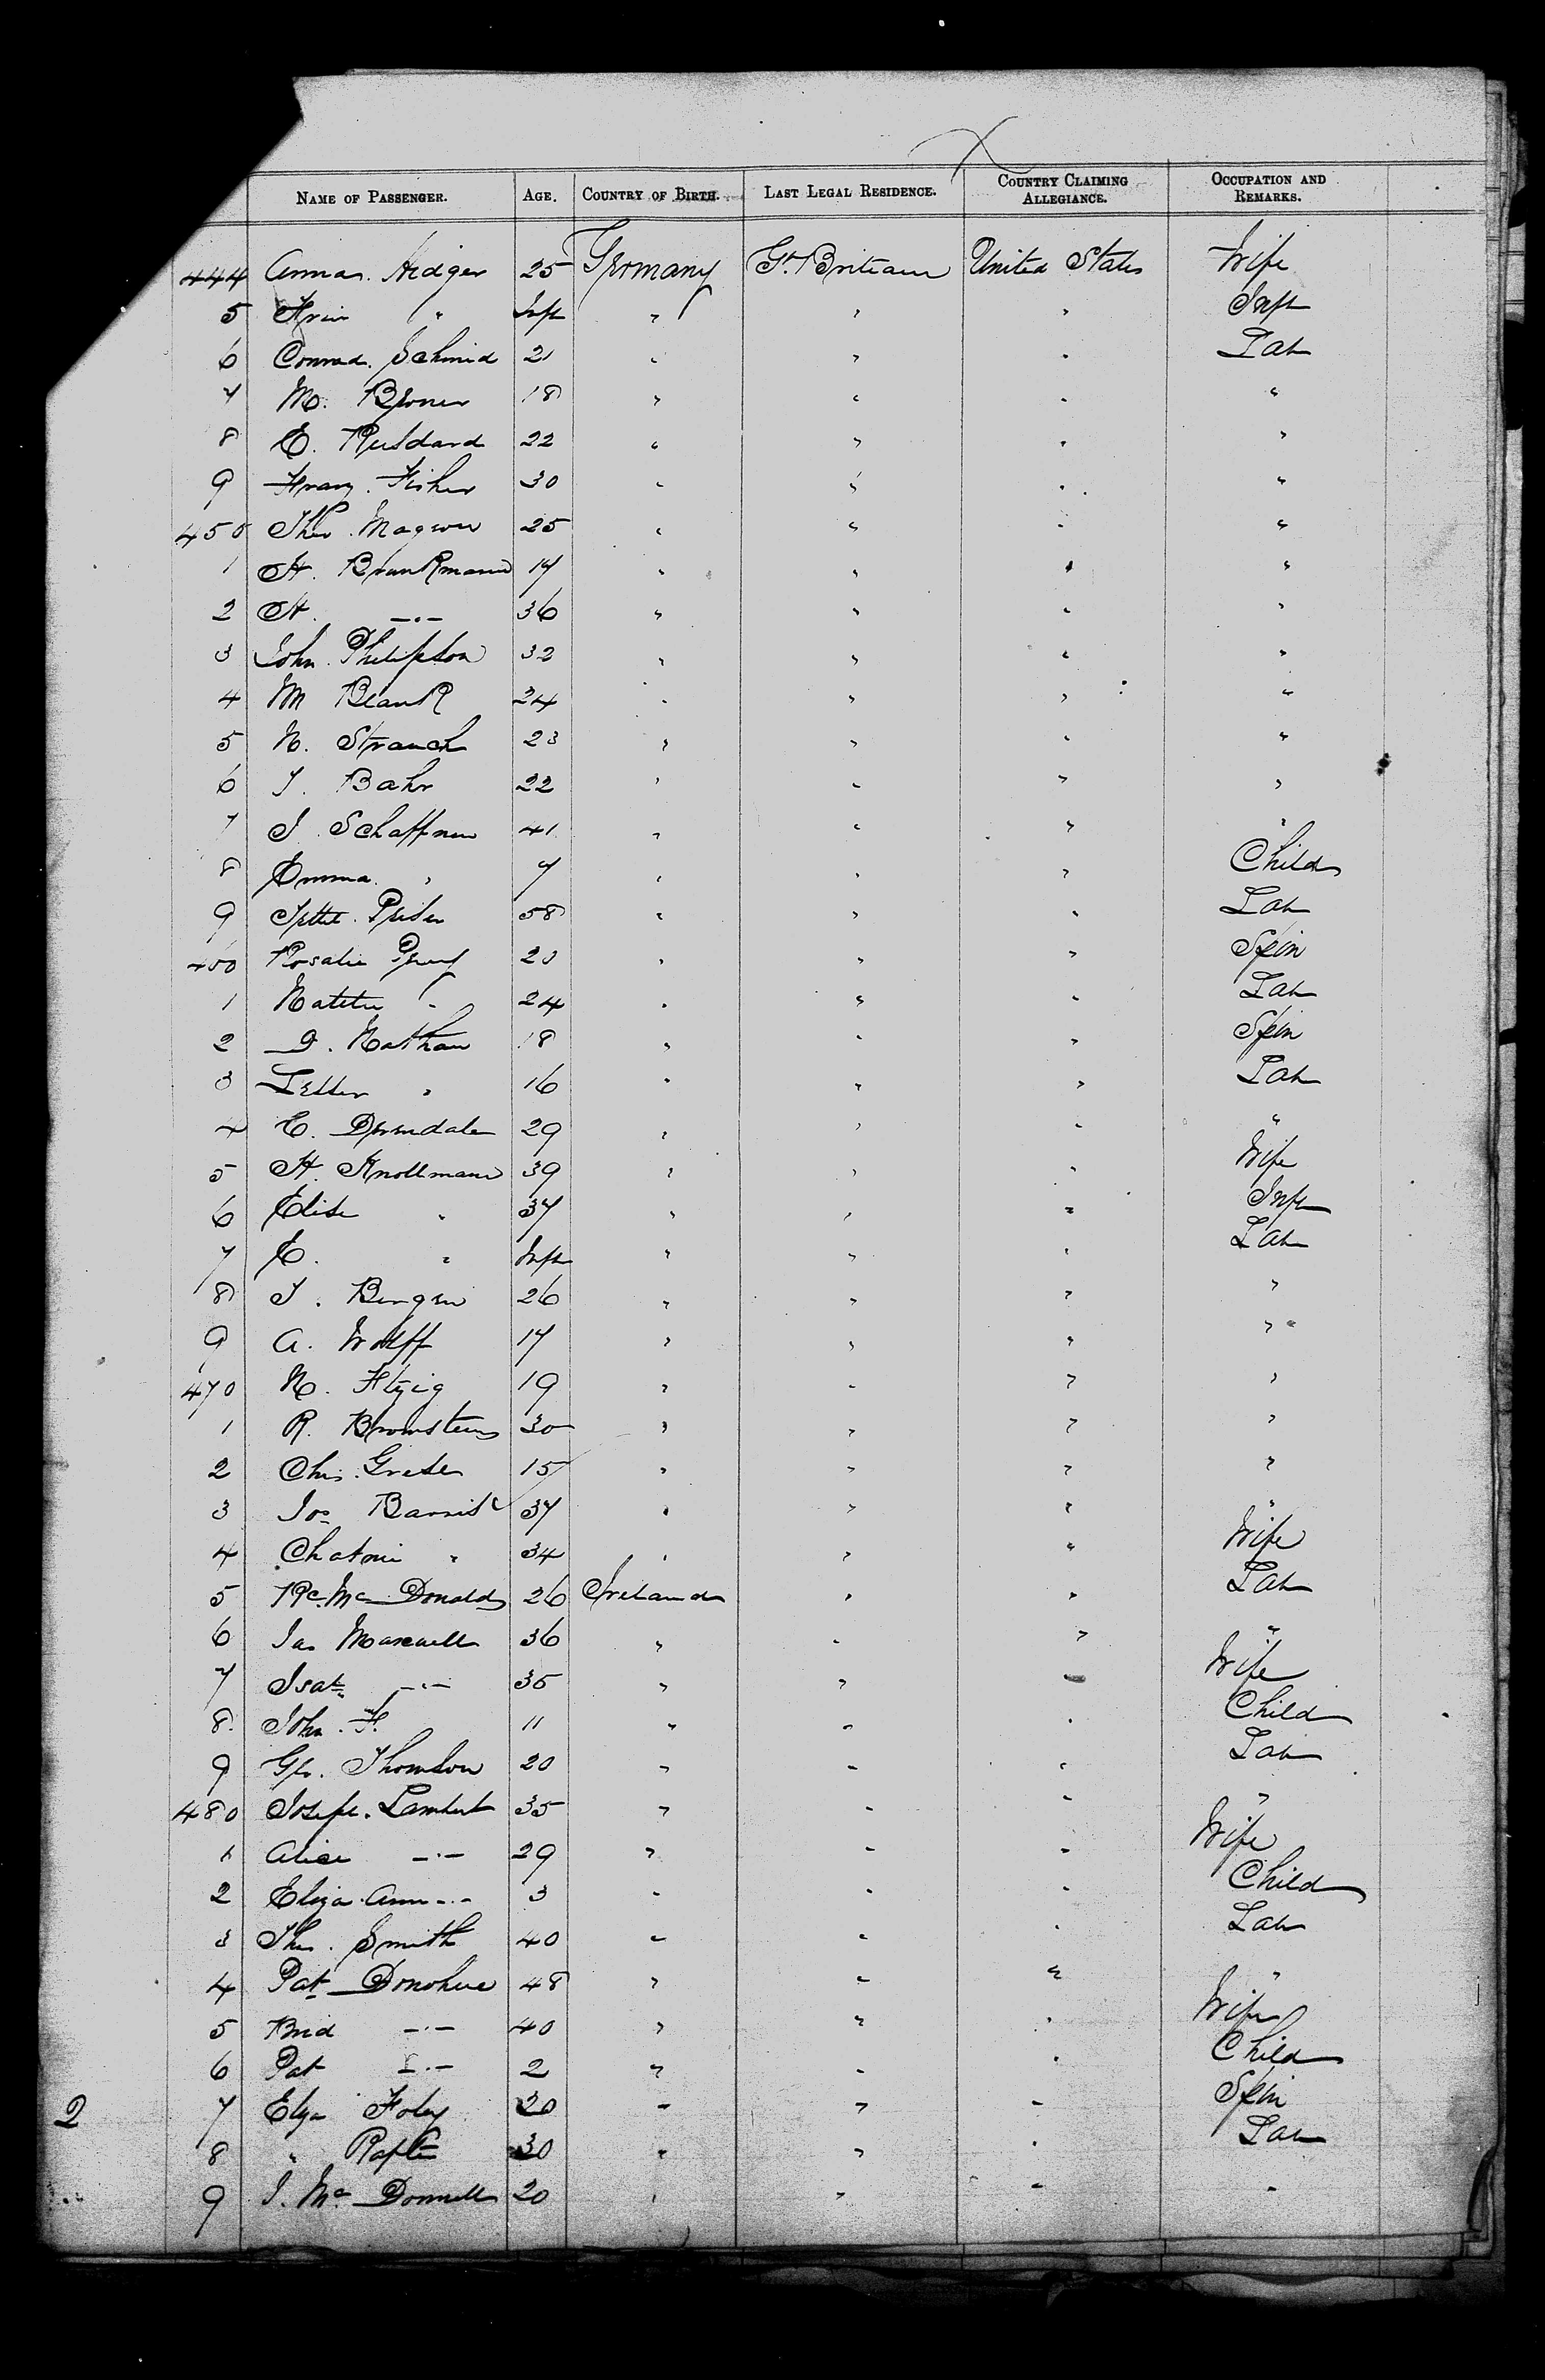 NAME OF PASSENGER. AGE. COUNTRY OF BIRTH. LAST LEGAL RESIDENCE. COUNTRY CLAIMING ALLEGIANCE. OCCUPATION AND REMARKS.
444 Anna Hidger 25 Germany Gt. Britain United States Wife
5 " Inft " " " Inft
6 Conrad Schmid 21 " " " Lab
7 M. 18 " " " "
8 E. 22 " " " "
9 Franz Fisher 30 " " " "
450 25 " " " "
1 H. Brankmann 17 " " " "
2 H. -"- 36 " " " "
3 John Philipson 32 " " " "
4 M Blank 24 " " " "
5 N. Strauch 23 " " " "
6 J. Bahr 22 " " " "
7 J. Schaffner 41 " " " "
8 Emma " 7 " " " Child
9 58 " " " Lab
460 Rosalie 20 " " " Spin
1 " 24 " " " Lab
2 D. Nathan 18 " " " Spin
3 " 16 " " " Lab
4 E. 29 " " " "
5 H. Knollmann 39 " " " Wife
6 Elise " 37 " " " Inft
7 E. " Inft " " " Lab
8 J. Bergen 26 " " " "
9 A. Wolff 17 " " " "
470 N. 19 " " " "
1 R. Brownstein 30 " " " "
2 Chs. 15 " " " "
3 Jos 37 " " " "
4 " 34 " " " Wife
5 McDonald 26 Ireland " " Lab
6 Jas Maxwell 36 " " " "
7 Isab -"- 35 " " " Wife
8 John F. 11 " " " Child
9 Geo. Thomson 20 " " " Lab
480 Joseph Lambert 35 " " " "
1 Alice -"- 29 " " " Wife
2 Eliza Ann -"- 3 " " " Child
3 Ths. Smith 40 " " " Lab
4 Pat Donohue 48 " " " "
5 Brid -"- 40 " " " Wife
6 Pat -"- 2 " " " Child
2 7 Eliza Foley 20 " " " Spin
8 " 30 " " " Lab
9 J. McDonnell 20 " " " "